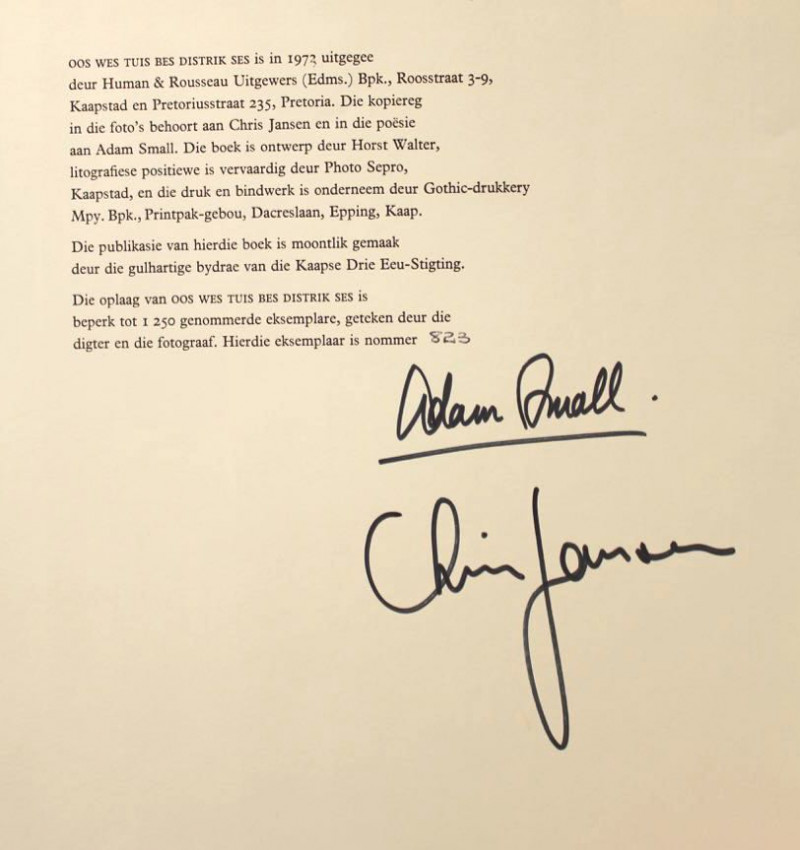 OOS WES TUIS BES DISTRIK SES is in 1973 uitgegee
deur Human & Rousseau Uitgewers (Edms.) Bpk., Roosstraat 3-9,
Kaapstad en Pretoriusstraat 235, Pretoria. Die kopiereg
in die foto's behoort aan Chris Jansen en in die poësie
aan Adam Small. Die boek is ontwerp deur Horst Walter,
litografiese positiewe is vervaardig deur Photo Sepro,
Kaapstad, en die druk en bindwerk is onderneem deur Gothic-drukkery
Mpy. Bpk., Printpak-gebou, Dacreslaan, Epping, Kaap.
Die publikasie van hierdie boek is moontlik gemaak
deur die gulhartige bydrae van die Kaapse Drie Eeu-Stigting.
Die oplaag van OOS WES TUIS BES DISTRIK SES is
beperk tot 1 250 genommerde eksemplare, geteken deur die
digter en die fotograaf. Hierdie eksemplaar is nommer 823
Adam Small.
Chris Jansen